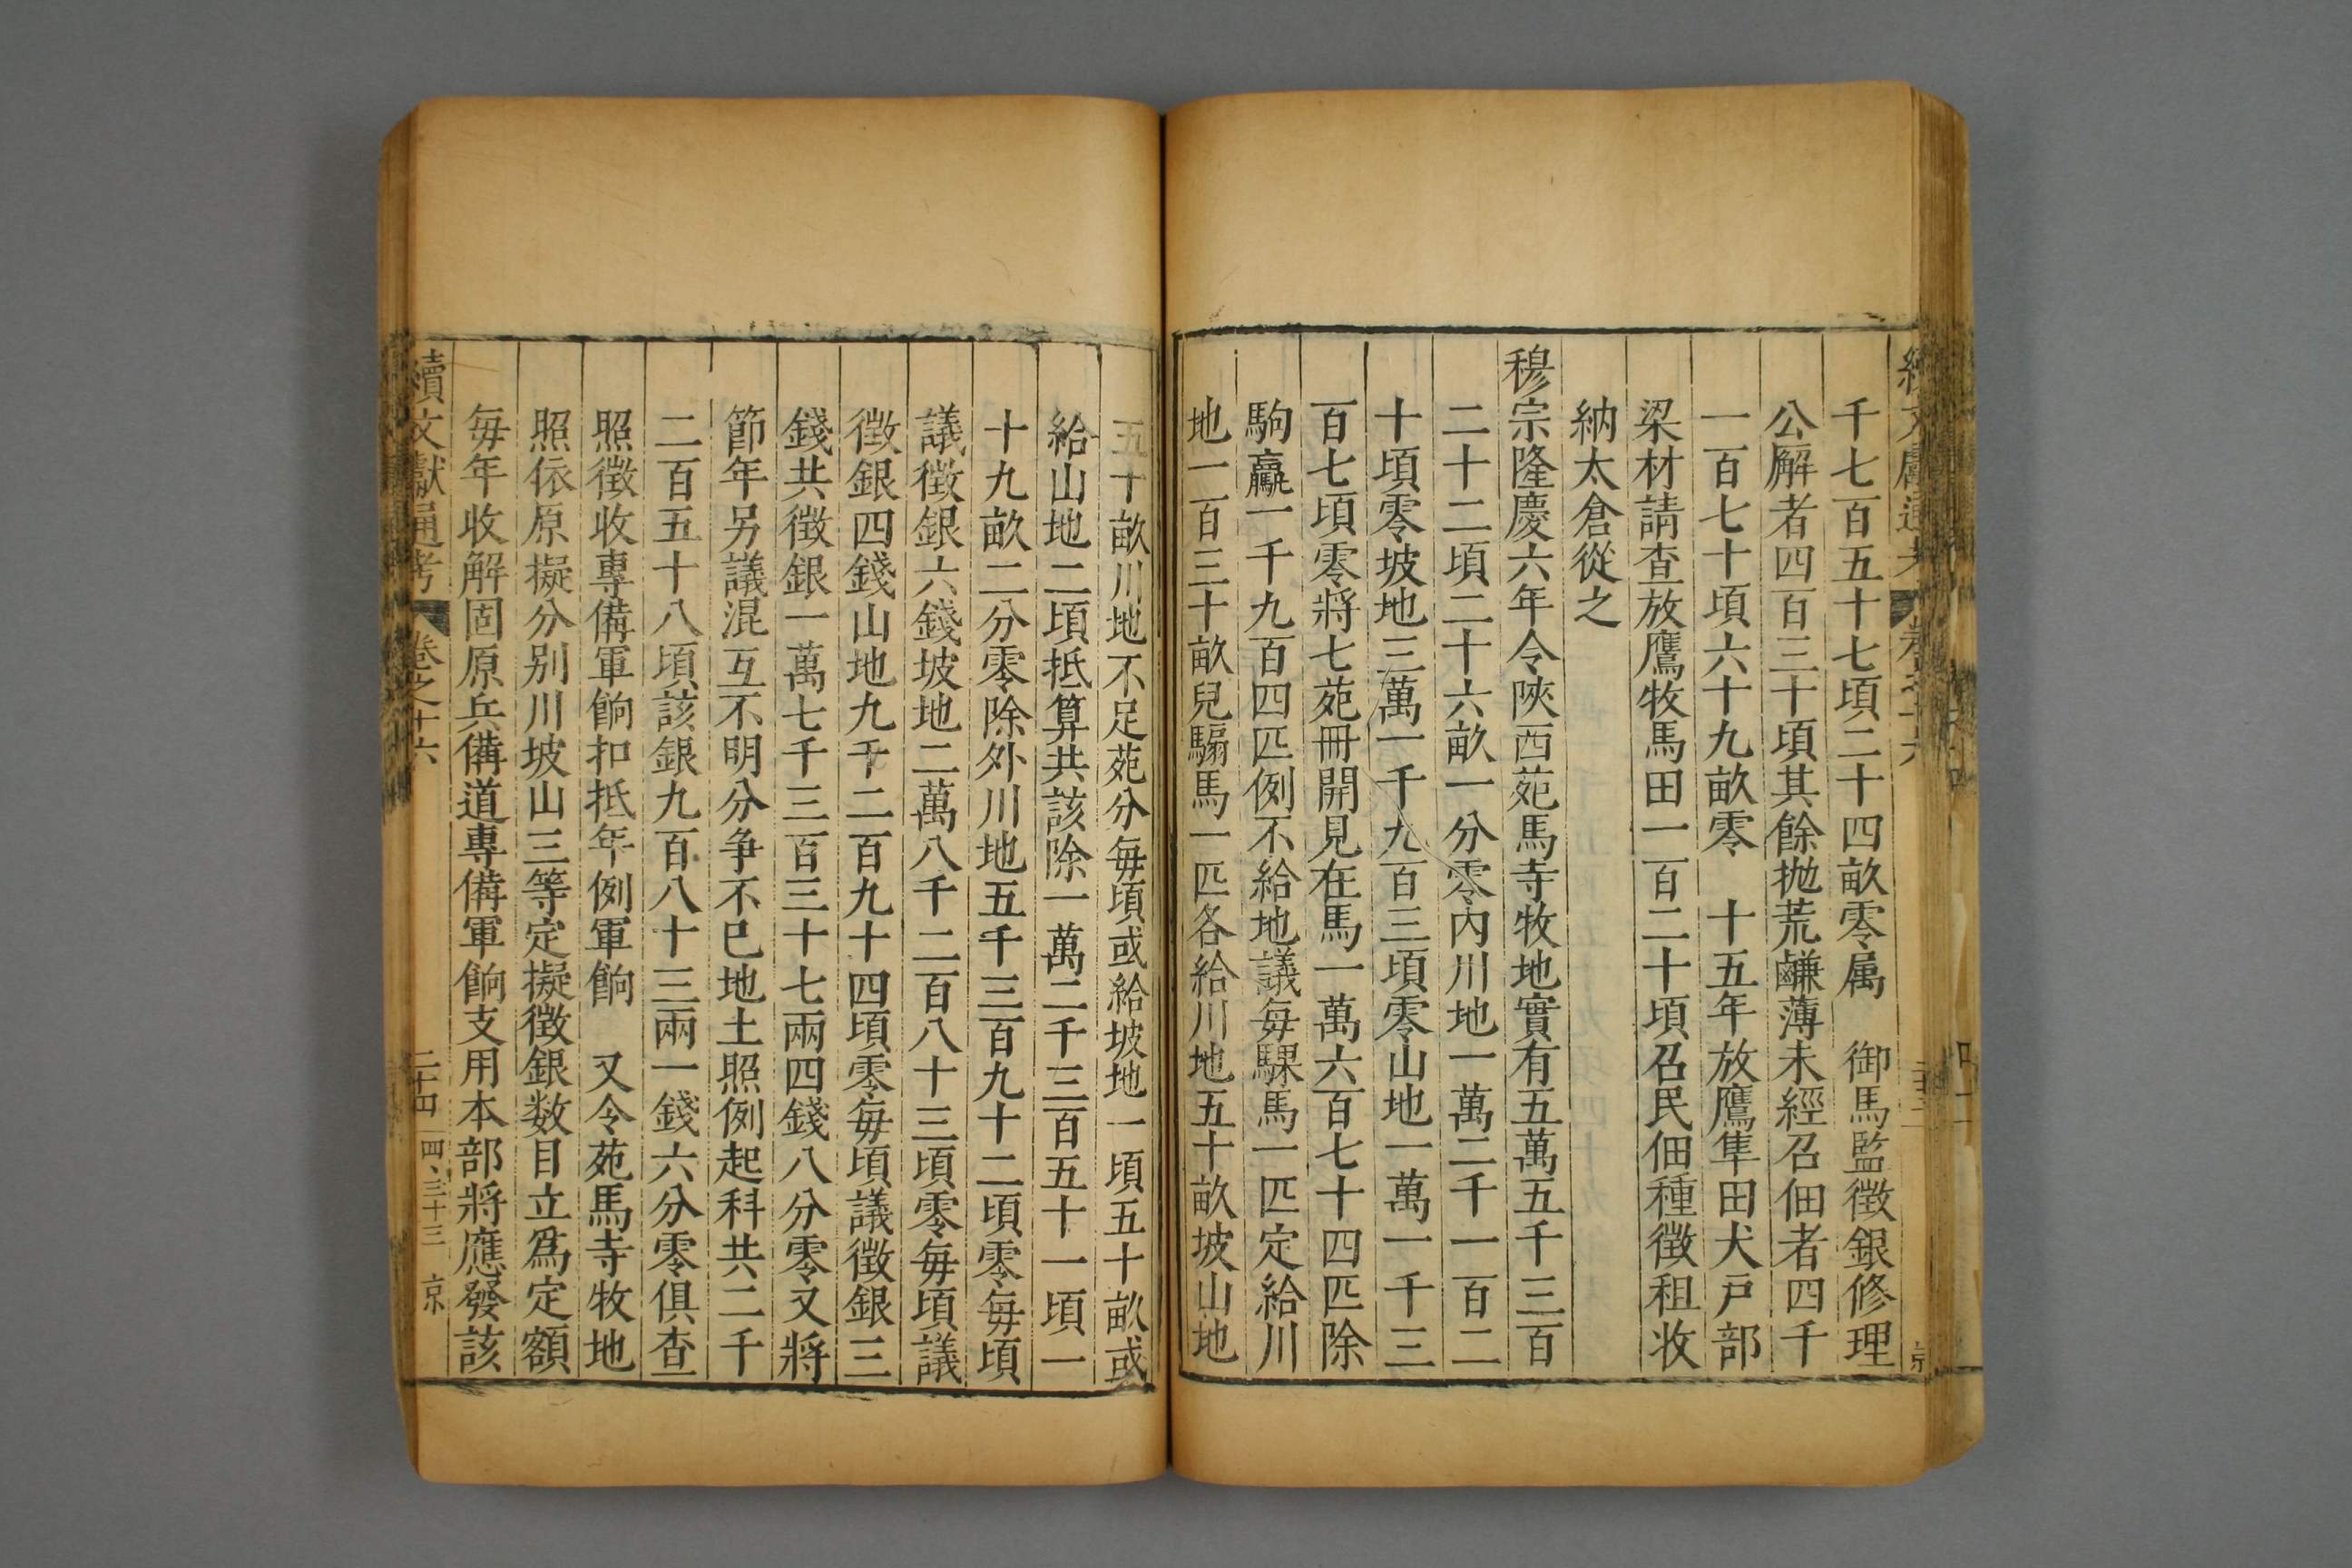 千七百五十七頃二十四畝零属　御馬監徴銀修理
公廨者四百三十頃其餘抛荒鹻薄未經召佃者四千
一百七十頃六十九畝零　十五年放鷹隼田犬戸部
梁材請查放鷹牧馬田一百二十頃召民佃種徴租收
納太倉從之
穆宗隆慶六年令陜西苑馬寺牧地實有五萬五千三百
二十二頃二十六畝一分零內川地一萬二千一百二
十頃零坡地三萬一千九百三頃零山地一萬一千三
百七頃零將七苑冊開見在馬一萬六百七十四匹除
駒驘一千九百四匹例不給地議每騍馬一匹定給川
地一百三十畝兒騸馬一匹各給川地五十畝坡山地
五十畝川地不足苑分每頃或給坡地一頃五十畝或
給山地二頃抵算共該除一萬二千三百五十一頃一
十九畝二分零除外川地五千三百九十二頃零每頃
議徴銀六錢坡地二萬八千二百八十三頃零每頃議
徴銀四錢山地九千二百九十四頃零每頃議徴銀三
錢共徴銀一萬七千三百三十七兩四錢八分零又將
節年另議混互不明分争不已地土照例起科共二千
二百五十八頃該銀九百八十三兩一錢六分零俱查
照徴收專備軍餉扣抵年例軍餉　又令苑馬寺牧地
照依原擬分别川坡山三等定擬徴銀数目立爲定額
每年收解固原兵備道專備軍餉支用本部將應發該
續文獻通考　卷之十六　二十四　四、三十三　京